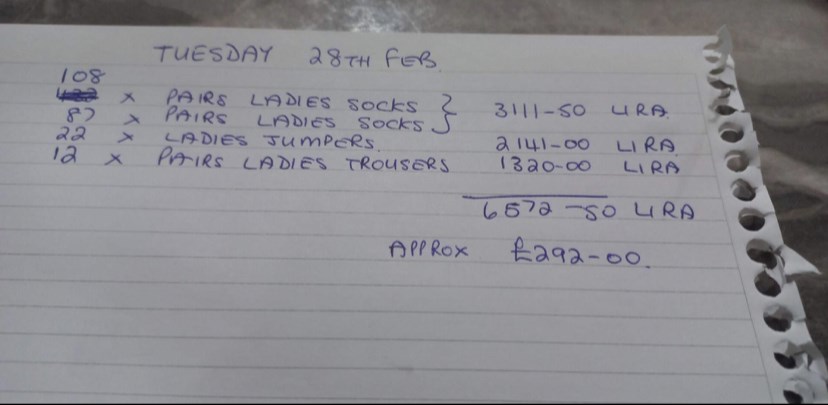 TUESDAY 28TH FEB.
108
x PAIRS LADIES SOCKS } 3111-50 LIRA.
87 x PAIRS LADIES SOCKS
22 x LADIES JUMPERS. 2141-00 LIRA
12 x PAIRS LADIES TROUSERS 1320-00 LIRA
6572-50 LIRA
APPROX £292-00.